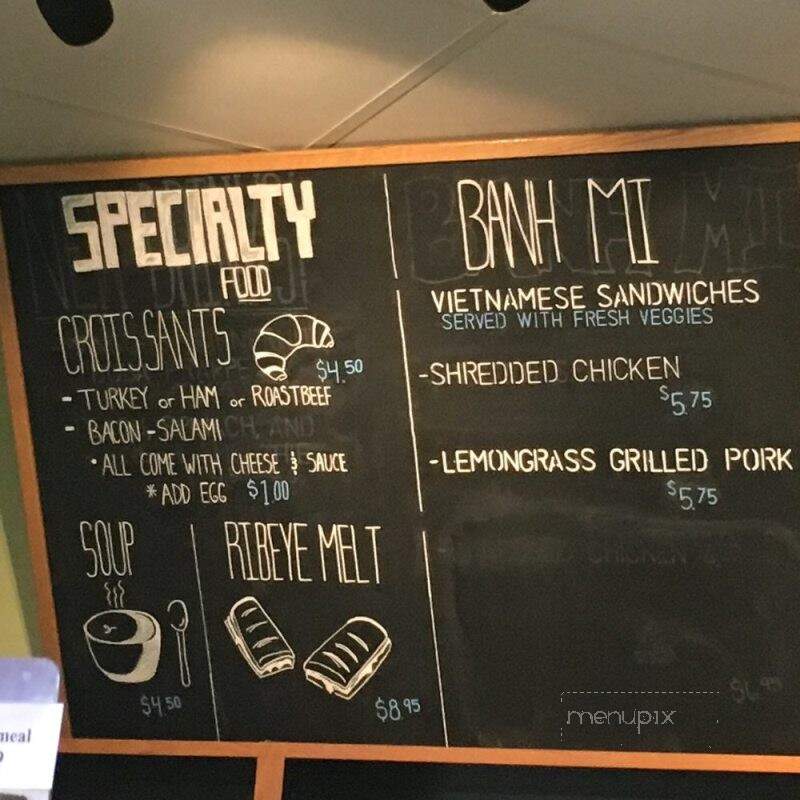 SPECIALTY
FOOD
CROISSANTS
$4.50
- TURKEY or HAM or ROASTBEEF
- BACON - SALAMI
• ALL COME WITH CHEESE & SAUCE
* ADD EGG $1.00
SOUP
$4.50
RIBEYE MELT
$8.95
BANH MI
VIETNAMESE SANDWICHES
SERVED WITH FRESH VEGGIES
-SHREDDED CHICKEN
$5.75
-LEMONGRASS GRILLED PORK
$5.75
menupix
meal